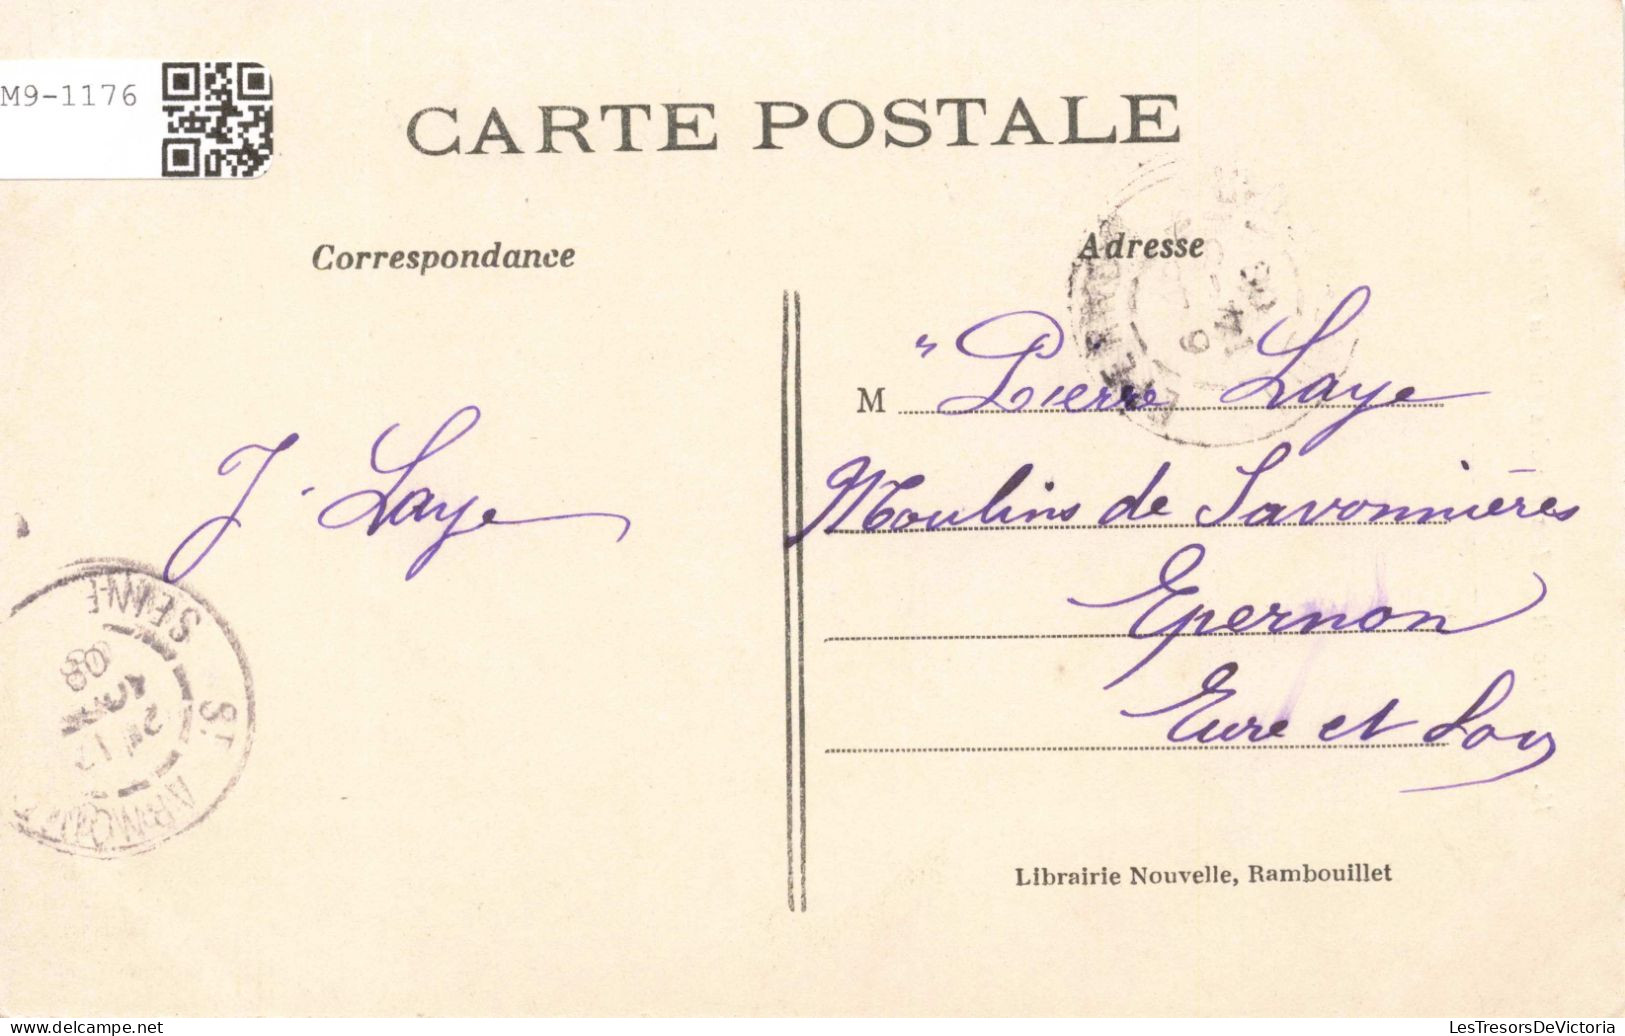 M9-1176
CARTE POSTALE
Correspondance
Adresse
M " Pierre Laye
Moulins de Savonnières
Epernon
Eure et Loir
J. Laye
SEINE
08
ST
Librairie Nouvelle, Rambouillet
www.delcampe.net
LesTresorsDeVictoria